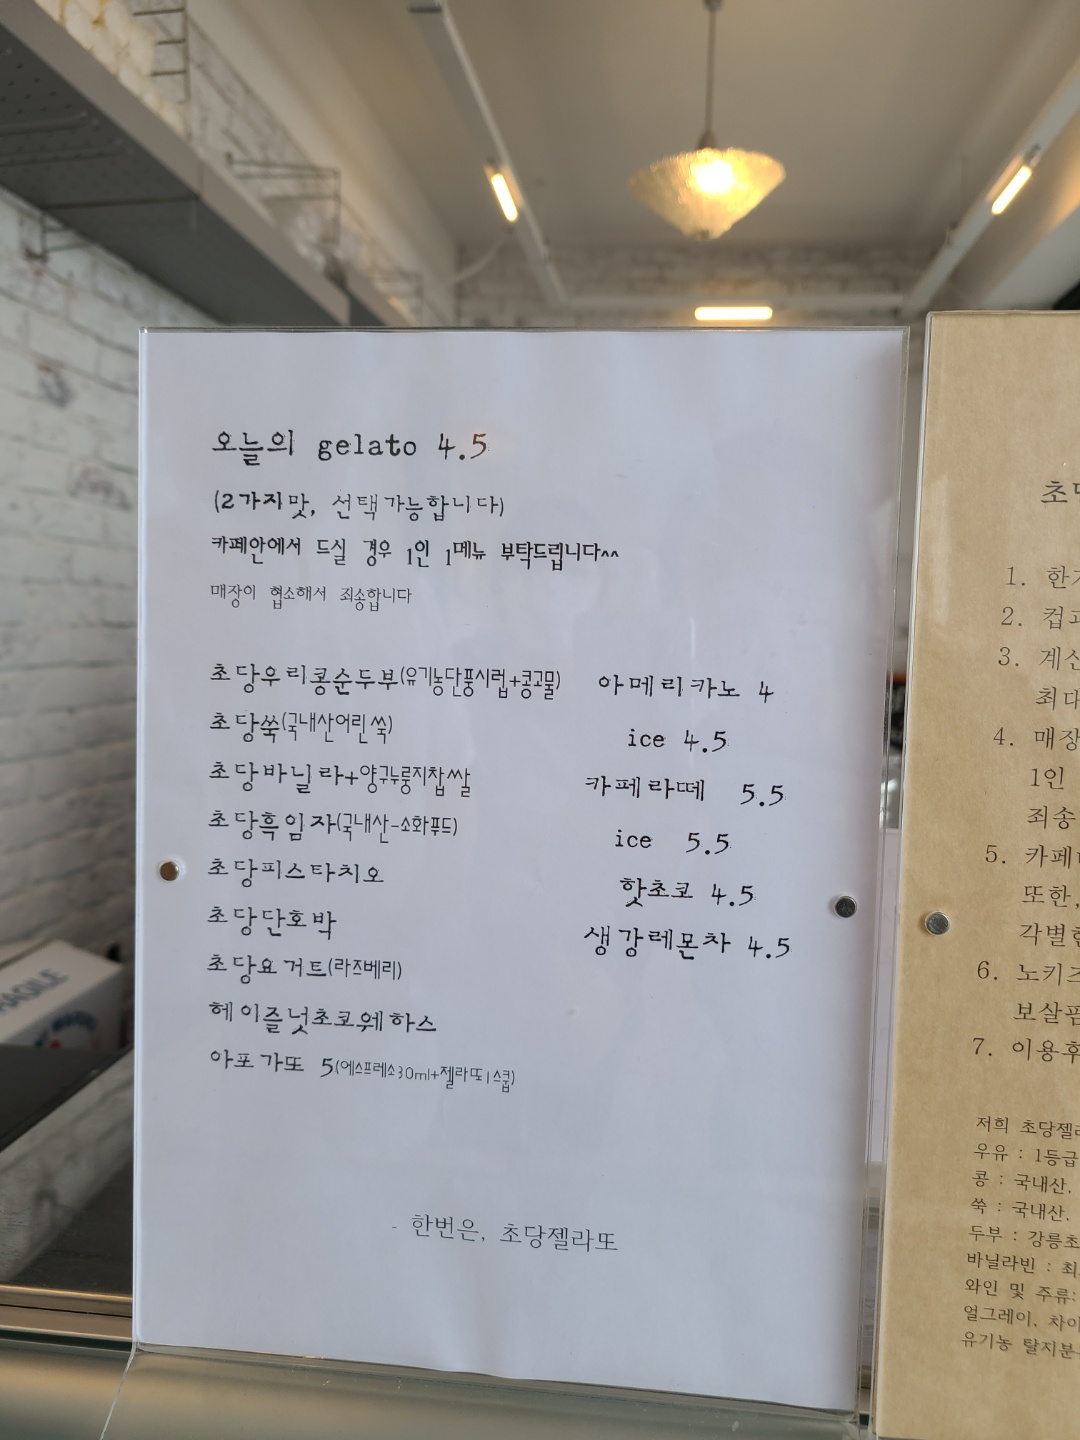 오늘의 gelato 4.5
(2가지맛, 선택가능합니다)
카페안에서 드실 경우 1인 1메뉴 부탁드립니다^^
매장이 협소해서 죄송합니다
초당우리콩순두부(유기농단풍시럽+콩고물)
초당쑥(국내산어린쑥)
초당바닐라+양구누룽지찹쌀
초당흑임자(국내산-소화푸드)
초당피스타치오
초당단호박
초당요거트(라즈베리)
헤이즐넛초코웨하스
아포가또 5(에스프레소30ml+젤라또1스쿱)
아메리카노 4
ice 4.5
카페라떼 5.5
ice 5.5
핫초코 4.5
생강레몬차 4.5
- 한번은, 초당젤라또
초당
1. 한
2. 컵
3. 계산
최대
4. 매장
1인
죄송
5. 카페
또한,
각별
6. 노키즈
보살핌
7. 이용후
저희 초당젤라
우유 : 1등급
콩 : 국내산,
쑥 : 국내산,
두부 : 강릉초
바닐라빈 : 최
와인 및 주류:
얼그레이, 차이
유기농 탈지분
FRAGILE